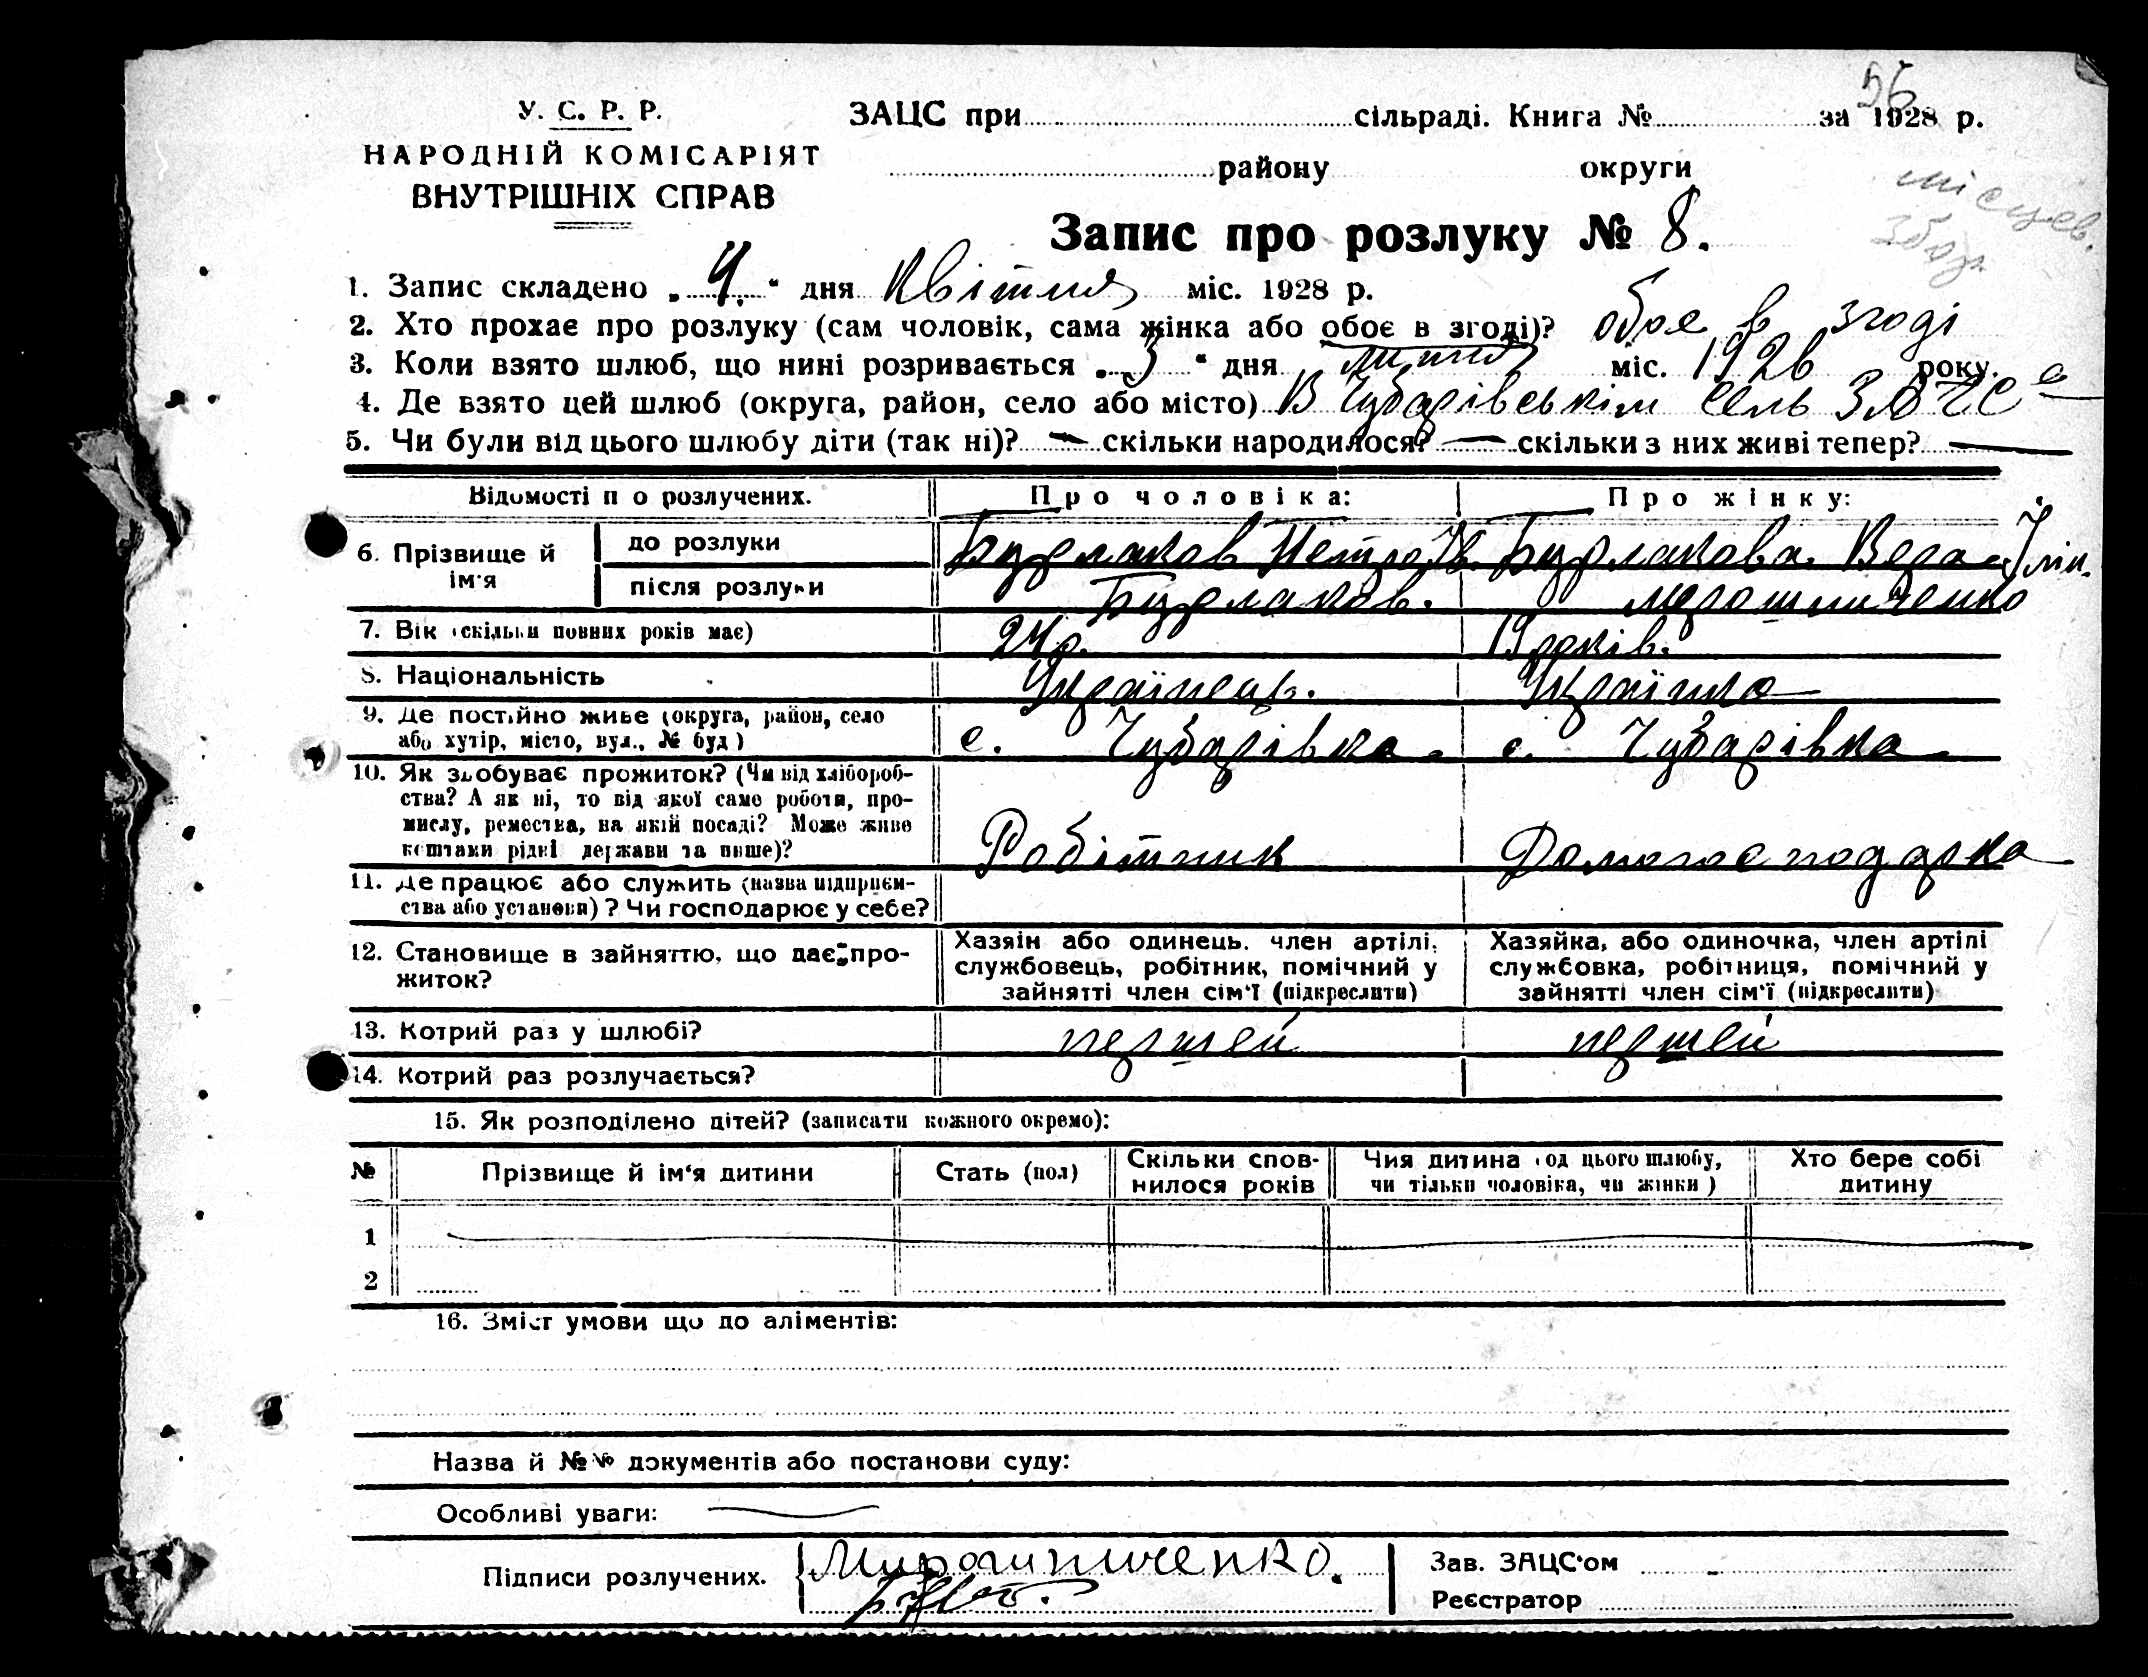 56
У. С. Р. Р.
НАРОДНІЙ КОМІСАРІЯТ
ВНУТРІШНІХ СПРАВ
ЗАЦС при сільраді. Книга № за 1928 р.
району округи
місцев.
Запис про розлуку № 8.
1. Запис складено „4“ дня Квітня міс. 1928 р.
2. Хто прохає про розлуку (сам чоловік, сама жінка або обоє в згоді)? обоє в згоді
3. Коли взято шлюб, що нині розривається „3“ дня липня міс. 1926 року.
4. Де взято цей шлюб (округа, район, село або місто) В Чубарівськім сель ЗАГСе
5. Чи були від цього шлюбу діти (так ні)? — скільки народилося? — скільки з них живі тепер? —
Відомості п о розлучених. Про чоловіка: Про жінку:
6. Прізвище й ім'я до розлуки Бурлаков Петро Ів. Бурлакова Вера Ілін.
після розлуки Бурлаков. Мерошниченко
7. Вік (скільки повних років має) 24 р. 19 років.
8. Національність Українець. Українка
9. Де постійно живе (округа, район, село
або хутір, місто, вул., № буд) с. Чубарівка с. Чубарівка
10. Як здобуває прожиток? (Чи від хлібороб-
ства? А як ні, то від якої саме роботи, про-
мислу, ремества, на якій посаді? Може живе
коштами рідні держави та инше)? Робітник Домогосподарка
11. Де працює або служить (назва підприєм-
ства або установи)? Чи господарює у себе?
12. Становище в зайняттю, що дає про-
житок?
Хазяін або одинець, член артілі,
службовець, робітник, помічний у
зайнятті член сім'ї (підкреслити)
Хазяйка, або одиночка, член артілі
службовка, робітниця, помічний у
зайнятті член сім'ї (підкреслити)
13. Котрий раз у шлюбі? першей першей
14. Котрий раз розлучається?
15. Як розподілено дітей? (записати кожного окремо):
№ Прізвище й ім'я дитини Стать (пол) Скільки спов-
нилося років Чия дитина (од цього шлюбу,
чи тільки чоловіка, чи жінки) Хто бере собі
дитину
1
2
16. Зміст умови що до аліментів:
Назва й №№ документів або постанови суду:
Особливі уваги: —
Підписи розлучених. Мирошниченко.
Зав. ЗАЦС'ом
Реєстратор